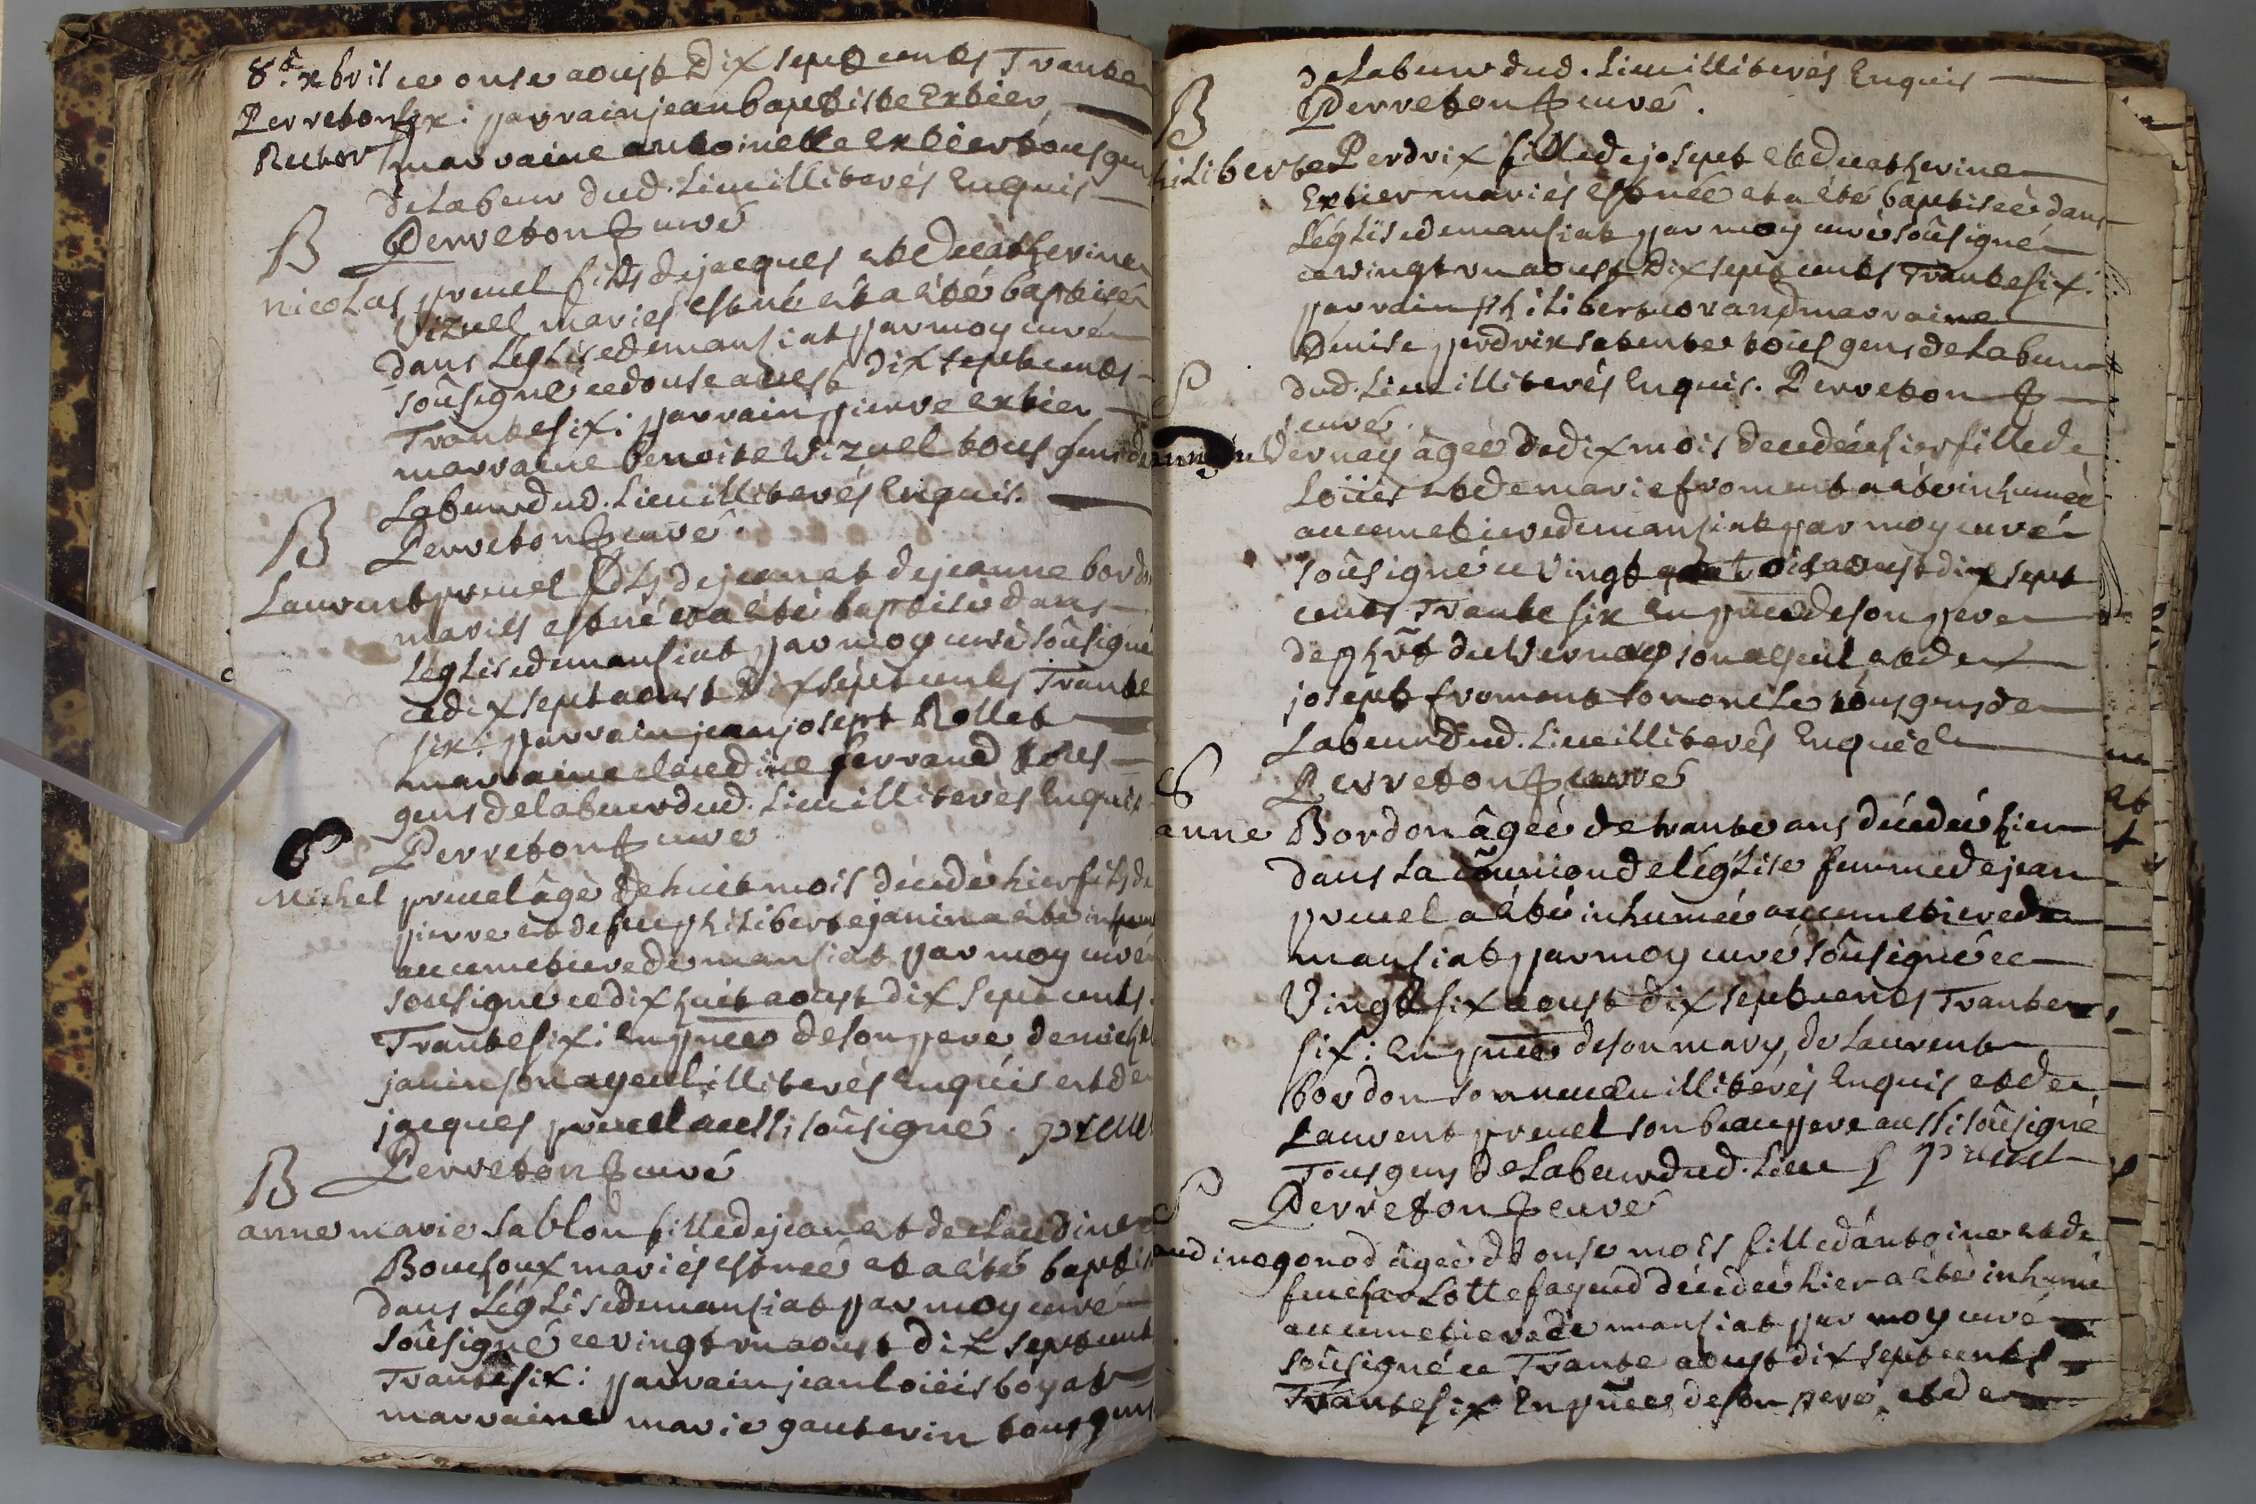 8.e xbris ce onse aoust Dix sept cents Trante
Perreton six : parrain jean baptiste Extier
Rector marraine antoinette extier tous gens
de Labeur dud. Lieu illiterés Enquis
Perreton curé
B
nicolas pruel fils de jacques et de catherine
Vizuel mariés est né et a été baptisé
dans L'église de mansiat par moy curé
soûsigné ce douse aoust dix sept cents
Trante six : parrain pierre extier
marraine benoite Vizuel tous gens de
Labeur dud. Lieu illiterés Enquis.
Perreton curé.
B
Laurent pruel fils de jean et de jeanne bordon
mariés est né et a été baptisé dans
L'église de mansiat par moy curé soûsigné
ce dix sept aoust Dix sept cents Trante
six : parrain jean josept Rollet
marraine claudine ferrand tous
gens de labeur dud. Lieu illiterés Enquis
Perreton curé
Michel pruel âgé de huit mois décédé hier fils de
pierre et de feue philiberte janin a été inhumé
au cemetiere de mansiat par moy curé
sousigné ce dix huit aoust dix sept cents
Trante six : En pnce de son pere de michel
janin son ayeul illiterés Enquis et de
jacques pruel aussi soûsigné . pruel
Perreton curé
B
anne marie Sablon fille de jean et de claudine
Boucsoux mariés est née et a été baptisée
dans L'église de mansiat par moy curé
soûsigné ce vingt un aoust dix sept cent
Trante six : parrain jean loüis boyat
marraine marie gauterin tous gens
de Labeur dud. Lieu illiterés Enquis
Perreton curé.
B
philiberte Perdrix fille de josept et de catherine
Extier mariés est née et a été baptisée dans
L'église de mansiat par moy curé soûsigné
ce vingt un aoust Dix sept cents Trante six :
parrain philibert morand marraine
Denise perdrix sa tente tous gens de Labeur
dud. Lieu illiterés Enquis. Perreton
curé.
Vernay âgée de dix mois décédée hier fille de
Loüis et de marie froment a été inhumée
au cemetiere de mansiat par moy curé
soûsigné ce Vingt aoust dix sept
cents Trante six En pnce de son pere
de phrt du Vernay son ayeul et de
josept froment son oncle tous gens de
Labeur dud. Lieu illiterés Enquis
Perreton curé
anne Bordon âgée de trante ans décédée hier
dans la cõmunion de l'église femme de jean
pruel a été inhumée au cemetiere de
mansiat par moy curé soûsigné ce
Vingt six aoust dix sept cents Trante
six : En pnce de son mary, de Laurent
bordon son neveu illiterés Enquis et de
Laurent pruel son beau pere aussi soûsigné
Tous gens de Labeur dud. Lieu L pruel
Perreton curé
audine gonod âgée de onse mois fille d'antoine et de
feue charlotte fayend décédée hier a été inhumé
au cemetiere de mansiat par moy curé
soûsigné ce Trante aoust dix sept cents
Trante six En pnce de son pere, et de